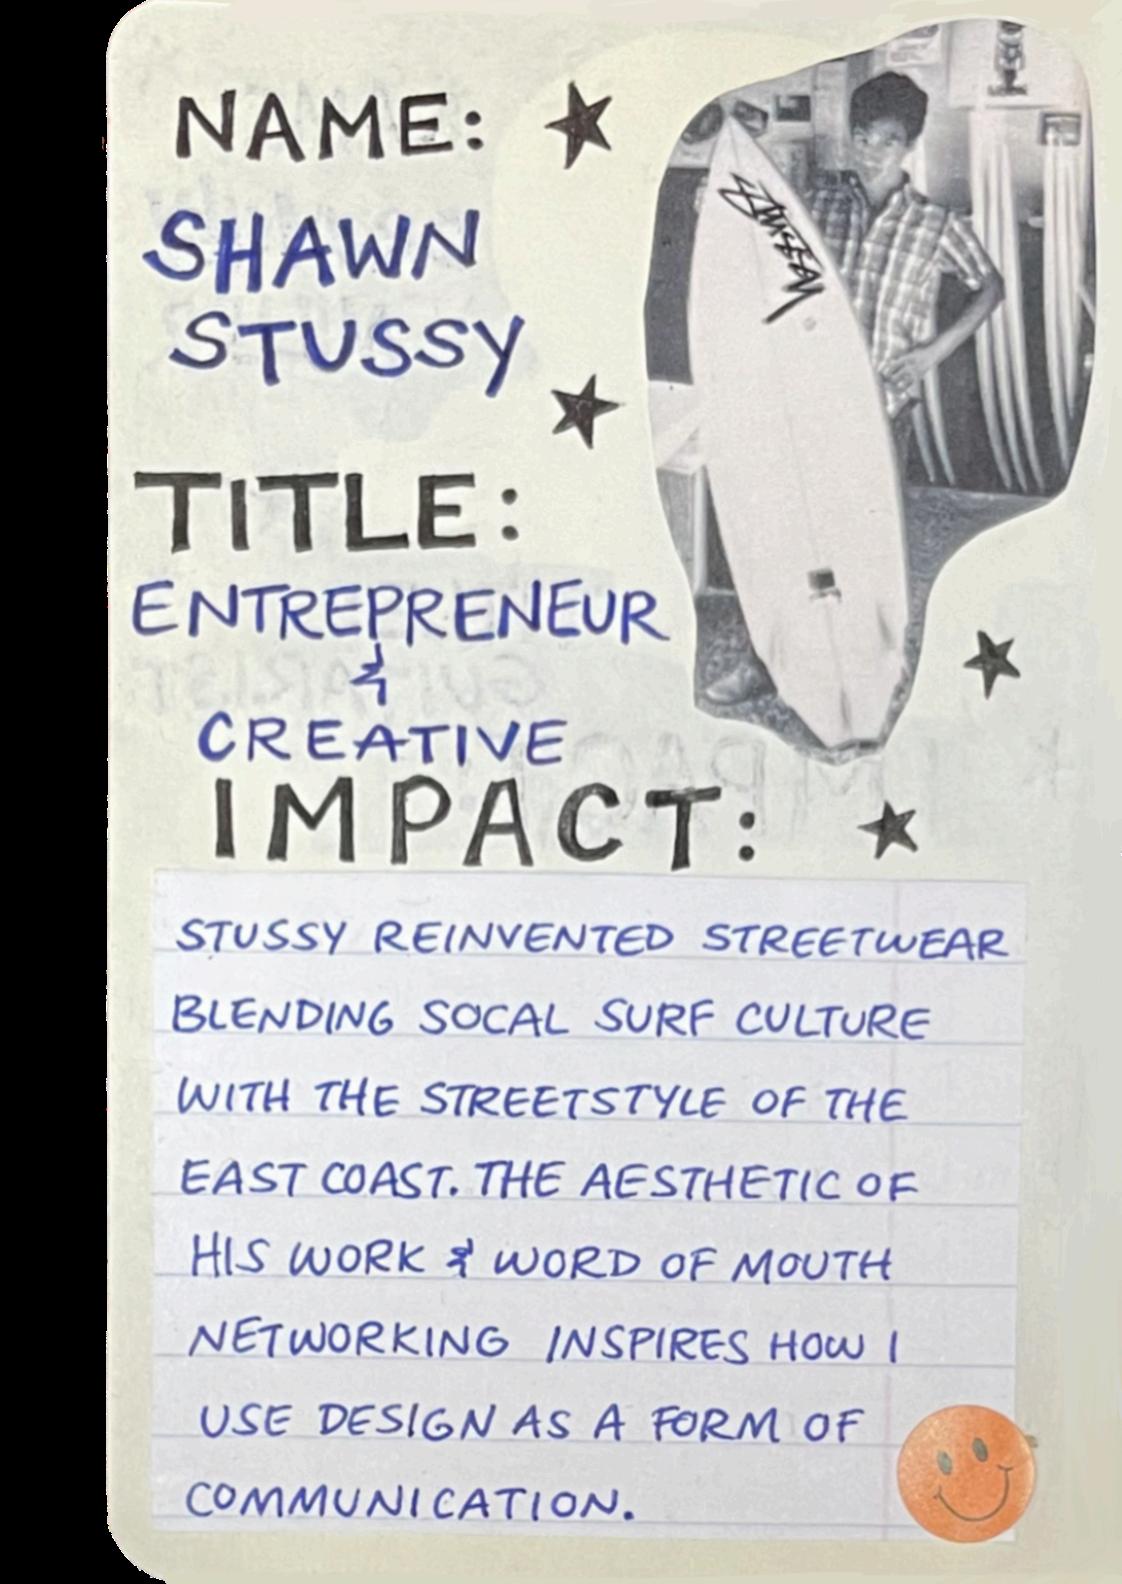 NAME:
SHAWN
STUSSY
STUSSY
TITLE:
ENTREPRENEUR
&
CREATIVE
IMPACT:
STUSSY REINVENTED STREETWEAR
BLENDING SOCAL SURF CULTURE
WITH THE STREETSTYLE OF THE
EAST COAST. THE AESTHETIC OF
HIS WORK & WORD OF MOUTH
NETWORKING INSPIRES HOW I
USE DESIGN AS A FORM OF
COMMUNICATION.